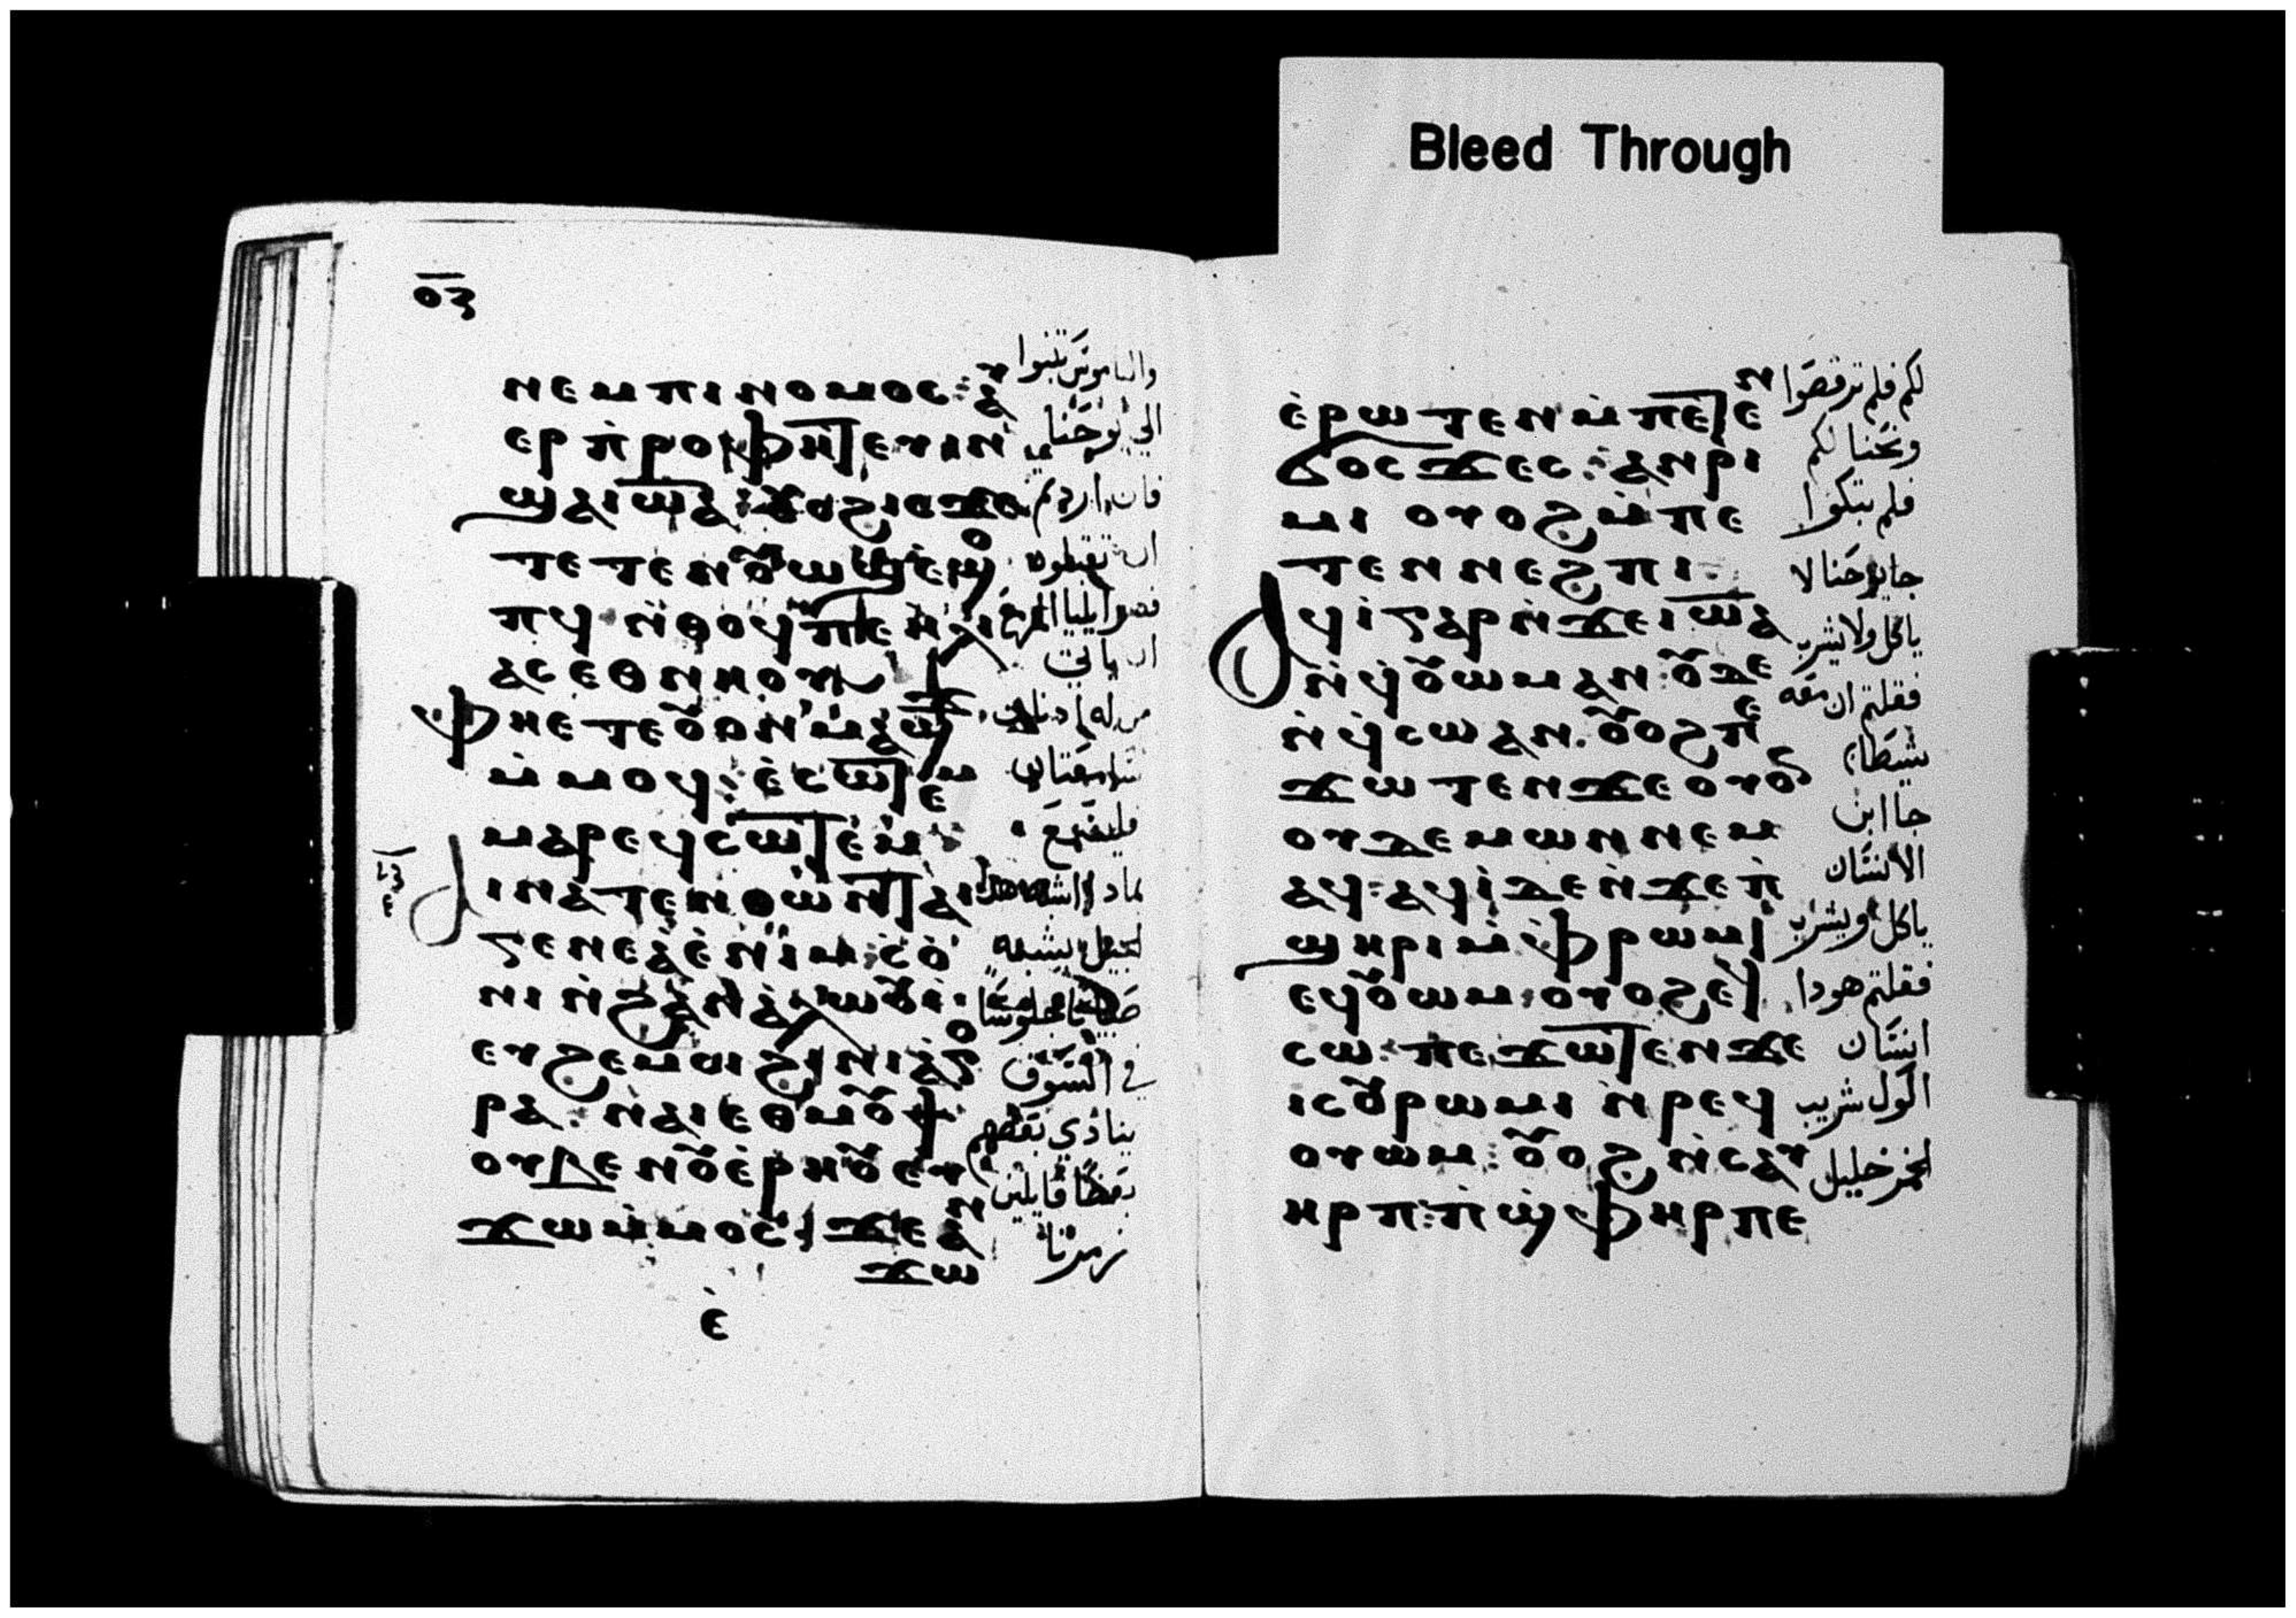 ⲟ̅ⲍ̅
ⲛⲉⲙ ⲡⲓⲛⲟⲙⲟⲥ: ⲁⲩ
ⲉⲣⲡ̀ⲣⲟⲫⲏⲧⲉⲩⲓⲛ
ϣⲁ ⲓⲱⲁ: ⲟⲩⲟϩ ⲓⲥϫⲉ
ⲧⲉⲧⲉⲛⲟⲩⲱϣ ⲉ̀ϣⲟ
ⲡϥ ⲛ̀ⲑⲟϥ ⲡⲉ ⲏⲗⲓ
ⲁⲥ ⲉⲑⲛⲏⲟⲩ
ⲫⲏ ⲉⲧⲉ ⲟⲩⲟⲛ ⲙⲁϣϫ
ⲙ̀ⲙⲟϥ: ⲉ̀ⲥⲱⲧⲉⲙ
ⲙⲁⲣⲉϥⲥⲱⲧⲉⲙ
ⲁⲓⲛⲁⲧⲉⲛⲑⲱⲛ ⲧⲁⲓ
ⲅⲉⲛⲉⲁ̀ ⲉ̀ⲛⲓⲙ: ⲥ̀ⲟ̀
ⲛⲓ ⲛ̀ϩⲁⲛⲁ̀ⲗⲱⲟⲩⲓ̀
ⲉⲩϩⲉⲙⲥⲓ ϩⲓ ⲛⲓⲁⲅⲟ
ⲣⲁ: ⲛⲁⲓ ⲉⲑⲙⲟⲩϯ
ⲟⲩⲃⲉ ⲛⲟⲩⲉ̀ⲣⲏⲟⲩ ⲉⲩ
ϫⲱ ⲙ̀ⲙⲟⲥ: ϫⲉ ⲁⲛ
ϫⲱ
ⲉ̀
الي يوحنا
فان اردتم
ان تقبلوه
فهوا ايليا المزمع
ان ياتي
من له اذنان
فليسمع
لجيل يشبه
في السوق
ينادي بعضهم
بعضا قايلين
زمرنا
Bleed Through
ⲉ̀ⲣⲱⲧⲉⲛ ⲙ̀ⲡⲉⲧⲉⲛ
ϭⲟⲥϫⲉⲥ: ⲁⲛⲣⲓ
ⲙⲓ ⲟⲩⲟϩ ⲙ̀ⲡⲉ
ⲧⲉⲛⲛⲉϩⲡⲓ:
ⲁϥⲓ̀ ⲅⲁⲣ ⲛ̀ϫⲉ ⲓⲱⲁ
ⲛ̀ϥ̀ⲟⲩⲱⲙ ⲁⲛ: ⲟⲩⲇⲉ
ⲛ̀ϥ̀ⲥⲱ ⲁⲛ. ⲟⲩⲟϩ ⲡⲉ
ϫⲱⲧⲉⲛ ϫⲉ ⲟⲩⲟ
ⲟⲩⲇⲉⲙⲱⲛ ⲛⲉⲙ
ⲁϥ: ⲁϥⲓ̀ ⲇⲉ ⲛ̀ϫⲉ ⲡ̀
ϣⲏⲣⲓ ⲙ̀ⲫⲣⲱⲙⲓ
ⲉϥⲟⲩⲱⲙ: ⲟⲩⲟϩ ⲉϥ
ⲥⲱ: ⲡⲉϫⲱⲧⲉⲛ ϫⲉ
ⲓⲥ ⲟⲩⲣⲱⲙⲓ ⲛ̀ⲣⲉϥ
ⲟⲩⲱⲙ: ⲟⲩⲟϩ ⲛ̀ⲥⲁⲩ
ⲏⲣⲡ: ⲡ̀ϣⲫⲏⲣ ⲡⲉ
لكم فلم ترقصوا
ونحنا لكم
فلم تبكوا
جا يوحنا لا
ياكل ولا يشرب
فقلتم ان معه
شيطان
جا ابن
الانسان
ياكل ويشرب
فقلتم هودا
انسان
اكول شريب
الخمر خليل